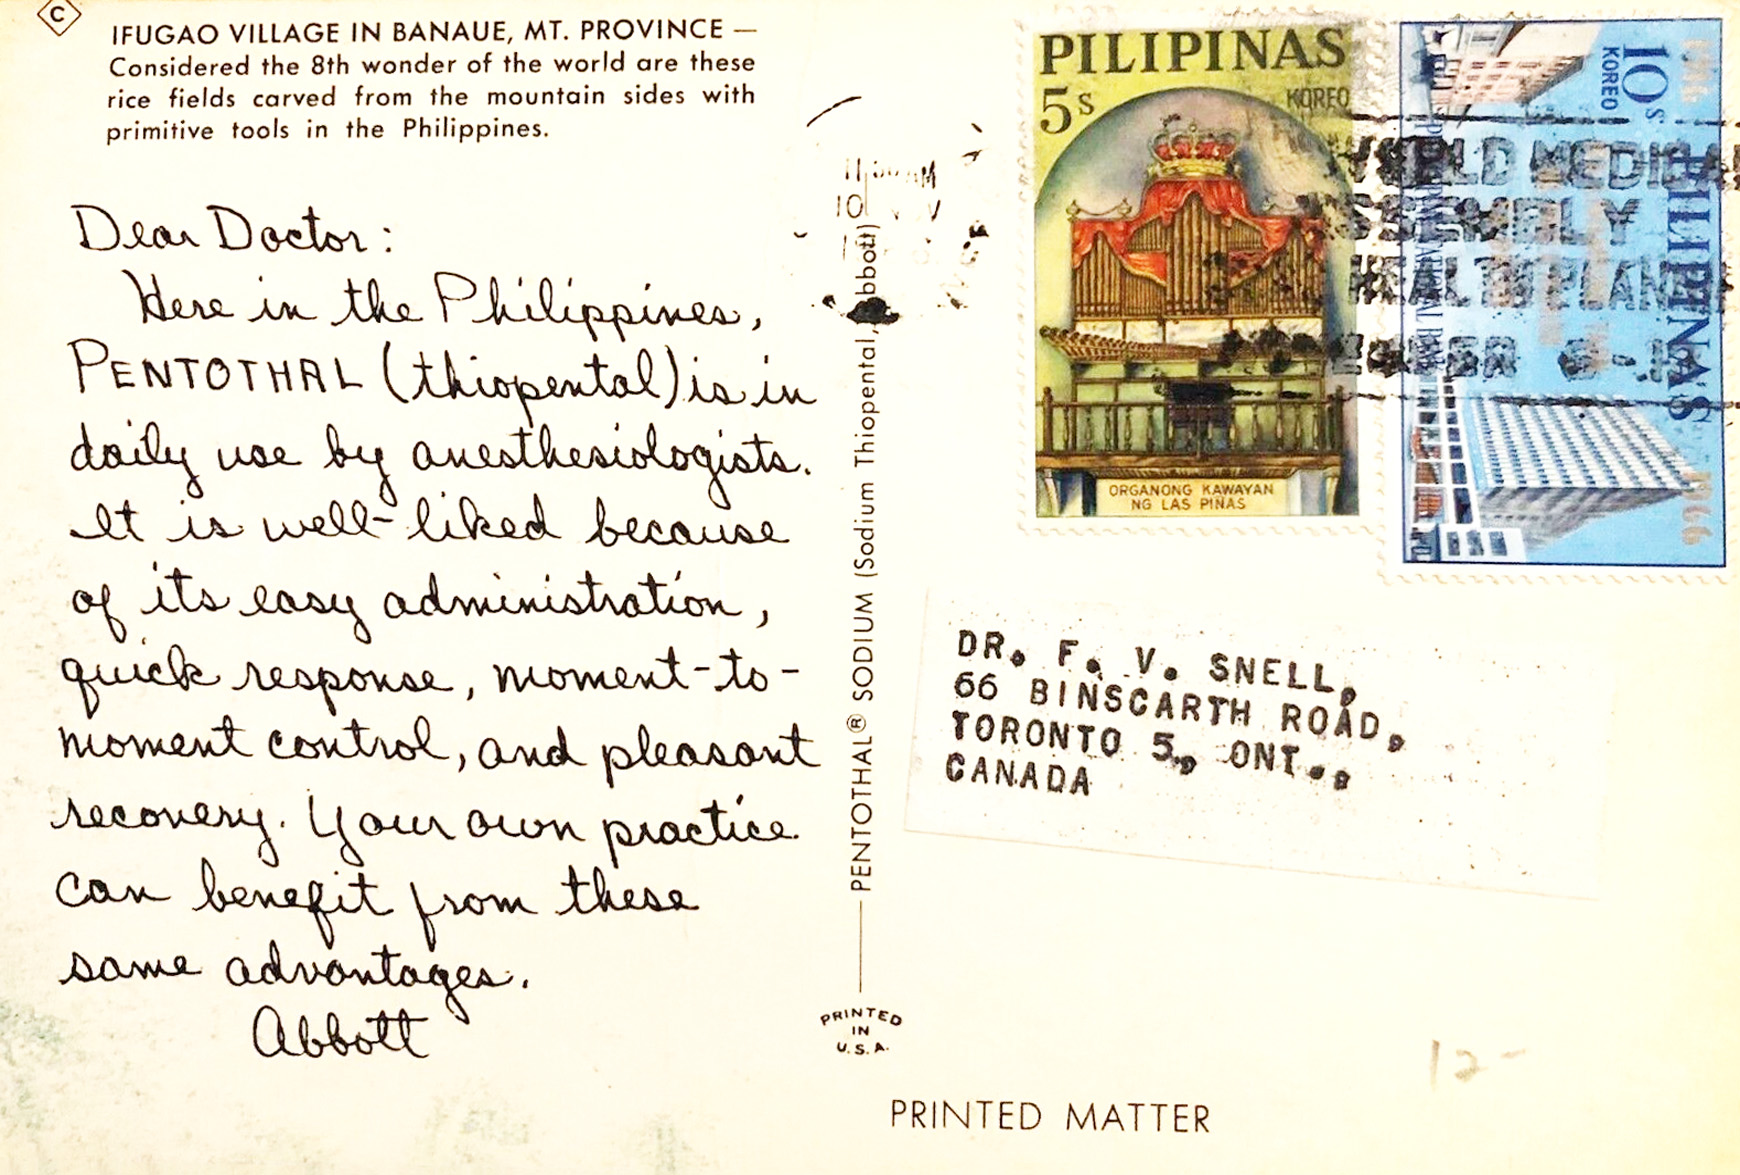 C
IFUGAO VILLAGE IN BANAUE, MT. PROVINCE —
Considered the 8th wonder of the world are these
rice fields carved from the mountain sides with
primitive tools in the Philippines.
Dear Doctor:
Here in the Philippines,
PENTOTHAL (thiopental) is in
daily use by anesthesiologists.
It is well-liked because
of its easy administration,
quick response, moment-to-
moment control, and pleasant
recovery. Your own practice
can benefit from these
same advantages.
Abbott
PENTOTHAL® SODIUM (Sodium Thiopental, Abbott)
PRINTED
IN
U.S.A.
PILIPINAS
5s
KOREO
ORGANONG KAWAYAN
NG LAS PIÑAS
10s
KOREO
PILIPINAS
1966
WORLD MEDICAL
ASSEMBLY
HEALTH PLAN
10
DR. F. V. SNELL,
66 BINSCARTH ROAD,
TORONTO 5, ONT.,
CANADA
12-
PRINTED MATTER